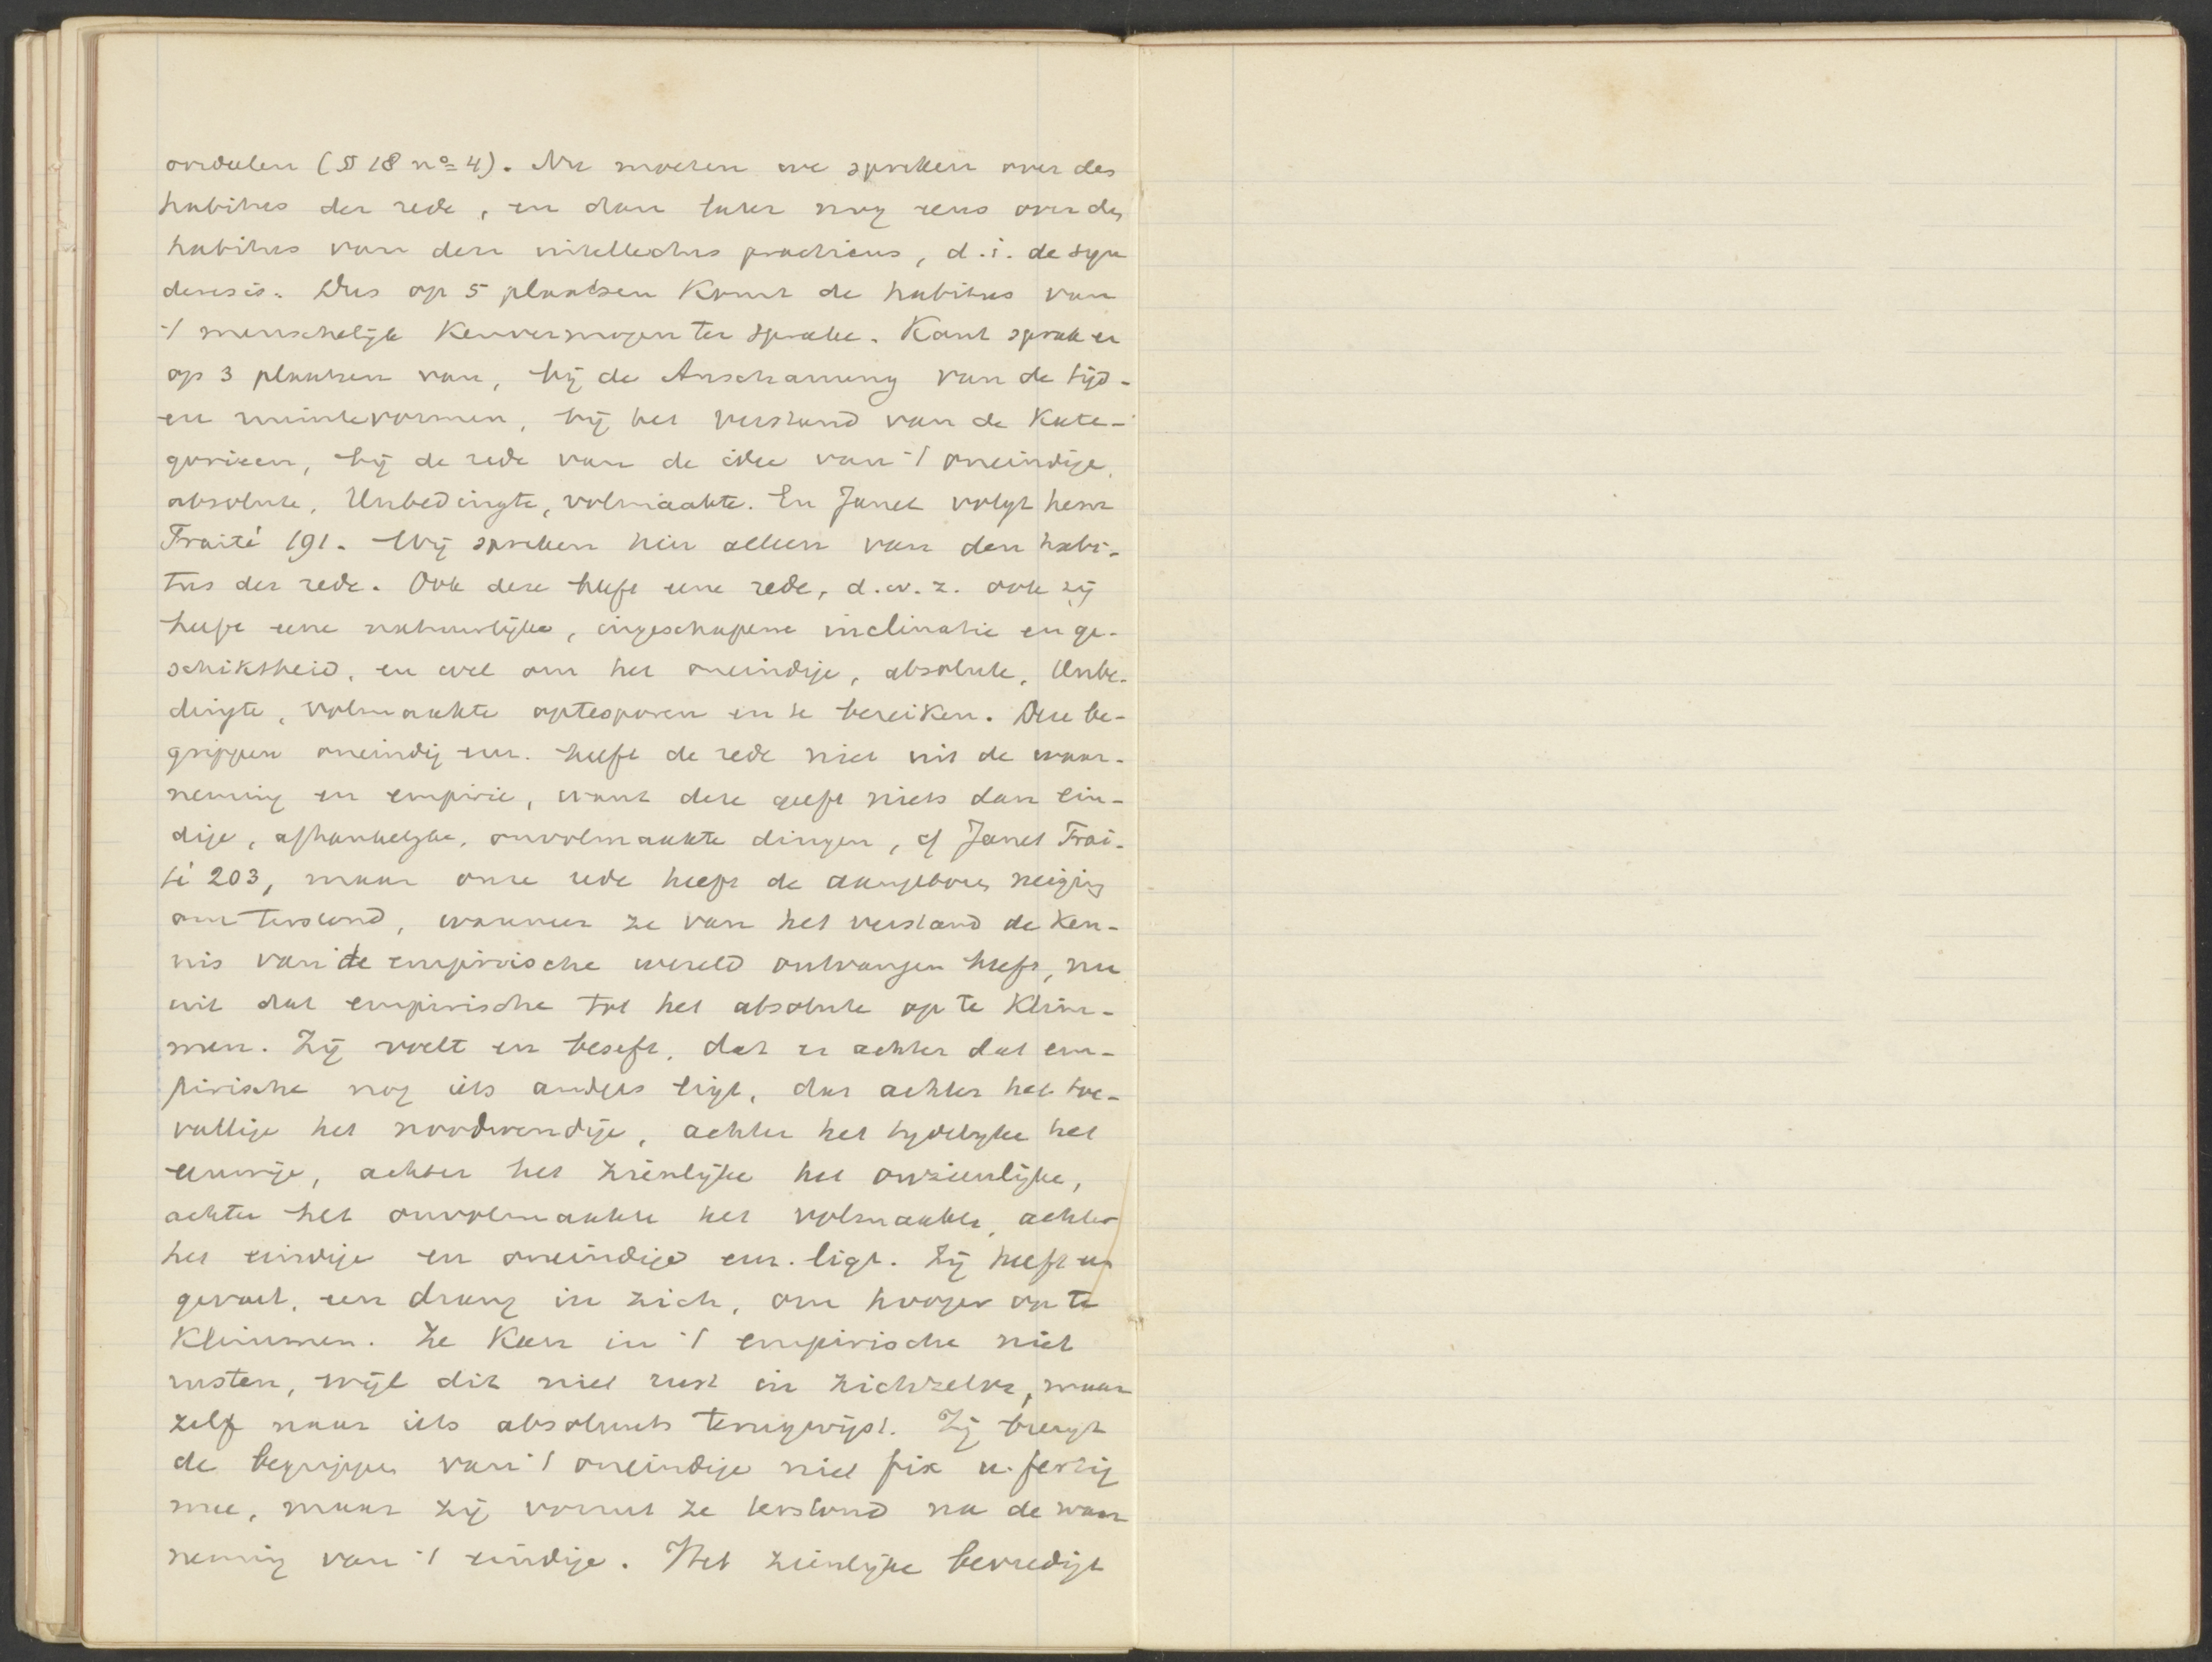 oordeelen (§ 18 no 4). Nu moeten we spreken over des
habitus der rede, en dan later nog eens over des
habitus van den intellectus practicus, d.i. de syn
deresis. Dus op 5 plaatsen komt de habitus van
't menschelijk kenvermogen ter sprake. Kant sprak er
op 3 plaatsen van, bij de Anschauung van de tijd-
en ruimtevormen, bij het verstand van de kate-
gorieen, bij de rede van de idee van 't oneindige,
absolute, Unbedingte, volmaakte. En Janet volgt hem
Traité 191. Wij spreken hier alleen van den habi-
tus der rede. Ook deze heeft eene rede, d.w.z. ook zij
heeft eene natuurlijke, ingeschapene inclinatie en ge-
schiktheid, en wel om het oneindige, absolute, Unbe-
dingte, volmaakte optesporen en te bereiken. Deze be-
grippen oneindig enz. heeft de rede niet uit de waar-
neming en empirie, want deze geeft niets dan ein-
dige, afhankelijke, onvolmaakte dingen, cf Janet Trai-
té 203, maar onze rede heeft de aangeboren neiging
om terstond, wanneer ze van het verstand de ken-
nis van de empirische wereld ontvangen heeft, nu
uit dat empirische tot het absolute op te klim-
men. Zij voelt en beseft, dat er achter dat em-
pirische nog iets anders ligt, dat achter het toe-
vallige het noodwendige, achter het tydelyke het
eeuwige, achter het zienlijke het onzienlijke,
achter het onvolmaakte het volmaakte, achter
het eindige en oneindige enz. ligt. Zij heeft een
gevoel, een drang in zich, om hooger op te
klimmen. Ze kan in 't empirische niet
rusten, wijl dit niet rust in zichzelve, maar
zelf naar iets absoluuts terugwijst. Zij brengt
de begrippen van 't oneindige niet fix u. fertig
mee, maar zij vormt ze terstond na de waar
neming van 't eindige. Het zienlijke bevredigt